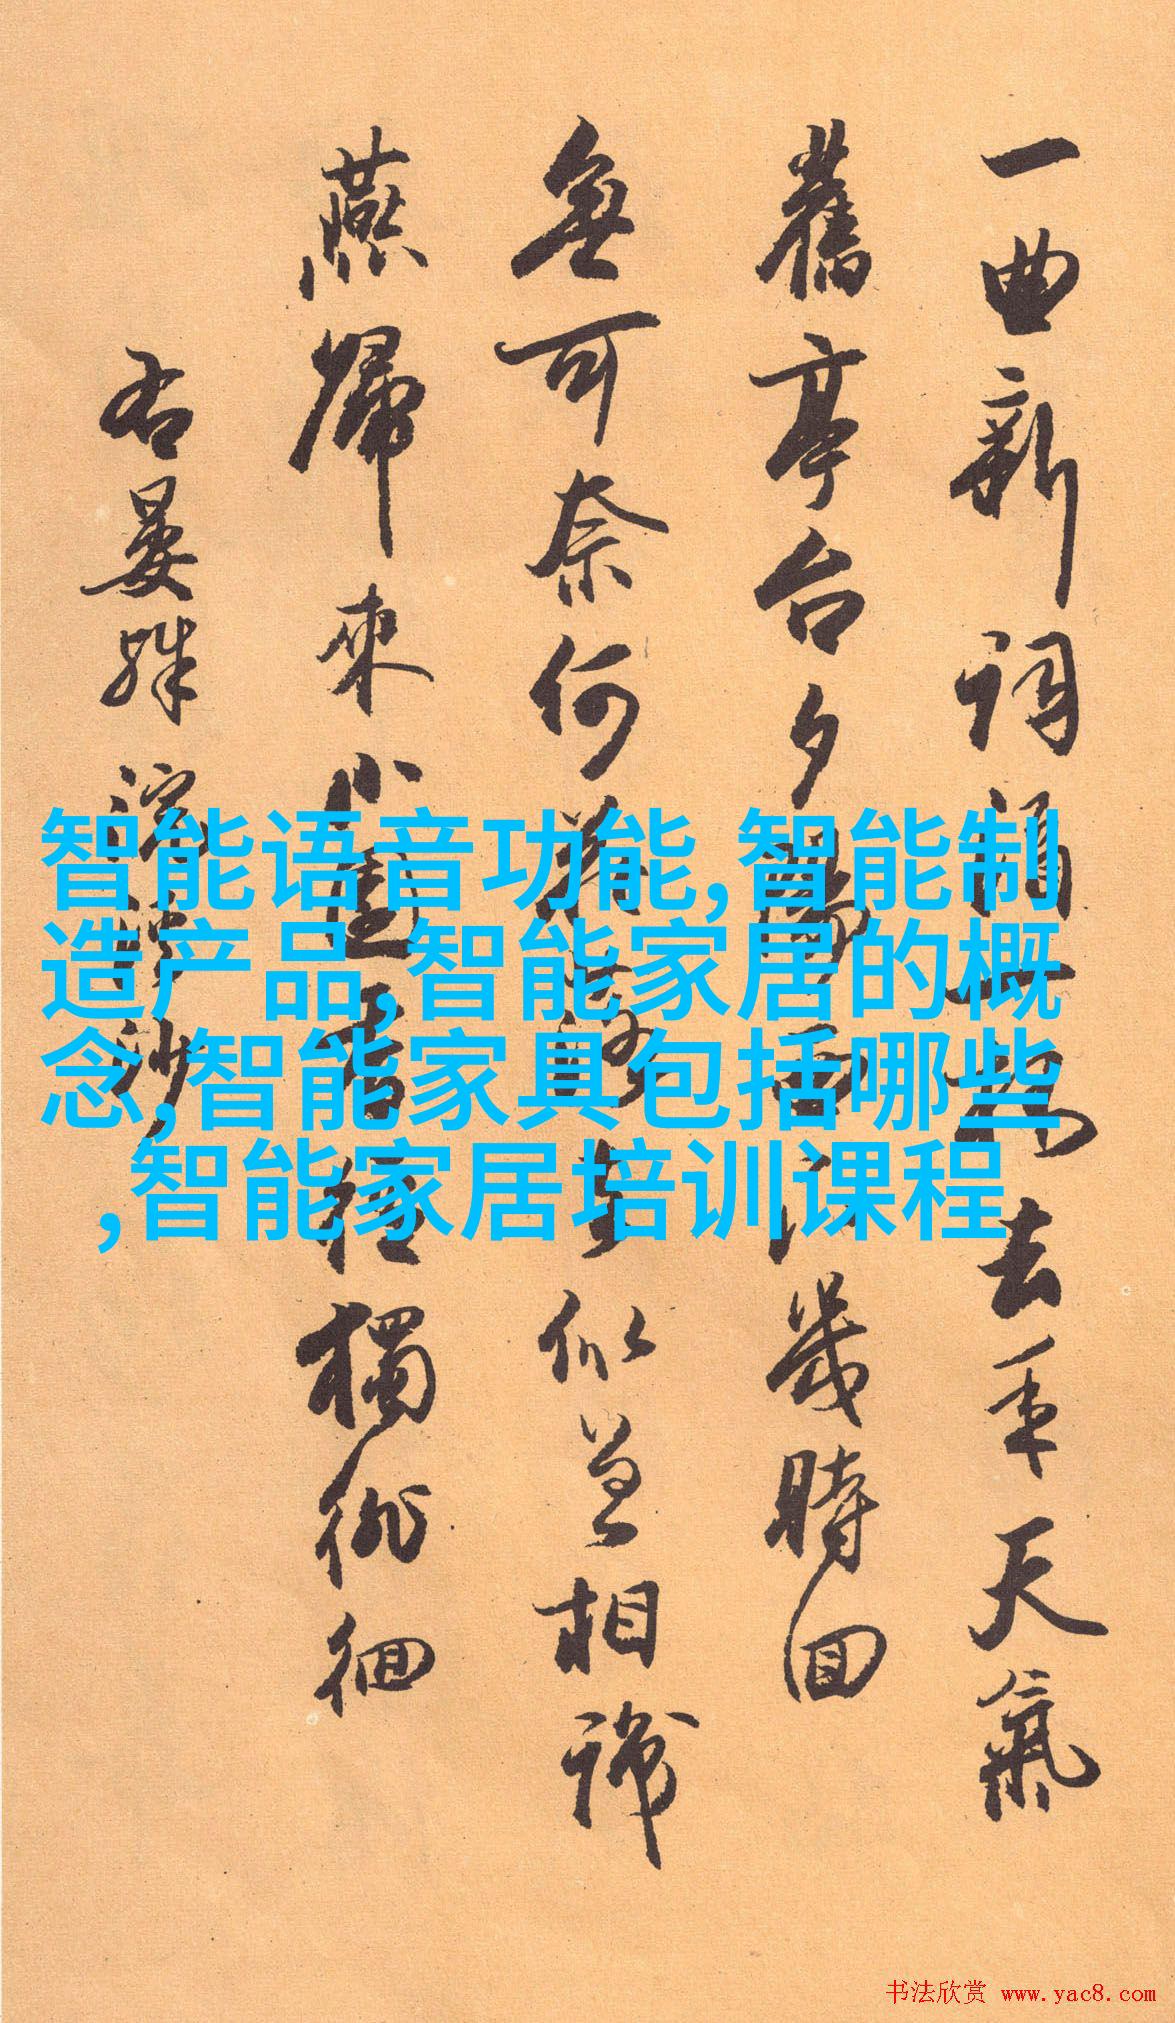 一曲新詞酒一杯去年天氣
舊亭台夕陽西下幾時回
無可奈何花落去似曾相識
燕歸來小園香徑獨徘徊
右晏殊浣溪沙
智能语音功能,智能制
造产品,智能家居的概
念,智能家具包括哪些
,智能家居培训课程
书法欣赏 www.yac8.com